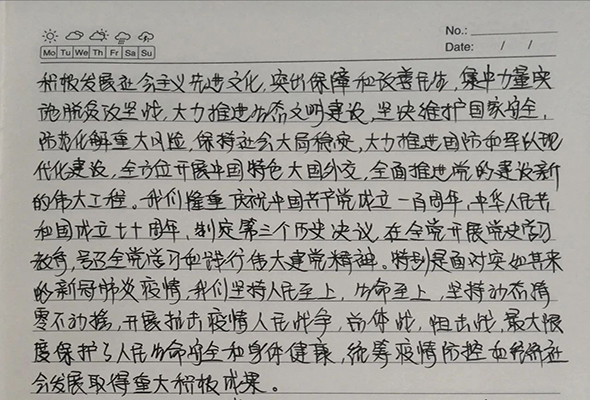 No.:
Date: / /
Mo Tu We Th Fr Sa Su
积极发展社会主义先进文化,突出保障和改善民生,集中力量实
施脱贫攻坚战,大力推进生态文明建设,坚决维护国家安全,
防范化解重大风险,保持社会大局稳定,大力推进国防和军队现
代化建设,全方位开展中国特色大国外交,全面推进党的建设新
的伟大工程。我们隆重庆祝中国共产党成立一百周年,中华人民共
和国成立七十周年,制定第三个历史决议,在全党开展党史学习
教育,号召全党学习和践行伟大建党精神。特别是面对突如其来
的新冠肺炎疫情,我们坚持人民至上,生命至上,坚持动态清
零不动摇,开展抗击疫情人民战争,总体战,阻击战,最大限
度保护了人民生命安全和身体健康,统筹疫情防控和经济社
会发展取得重大积极成果。